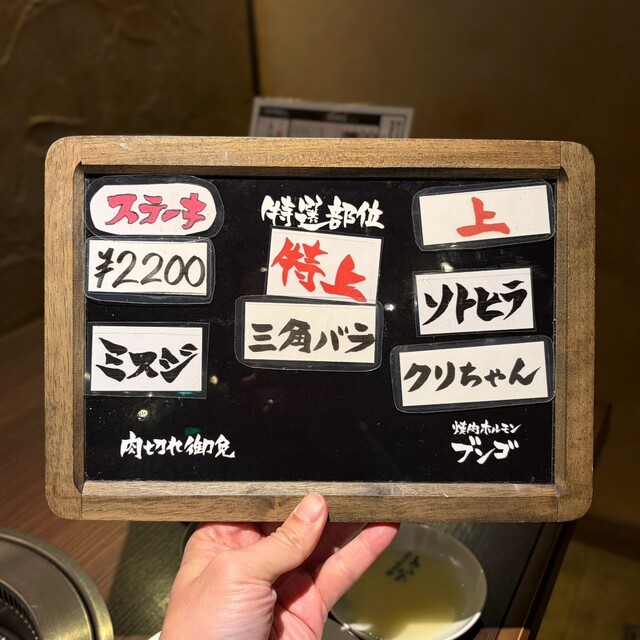 特選部位
ステーキ
¥2200
ミスジ
特上
三角バラ
上
ソトヒラ
クリちゃん
肉切れ御免
焼肉ホルモン
ブンゴ